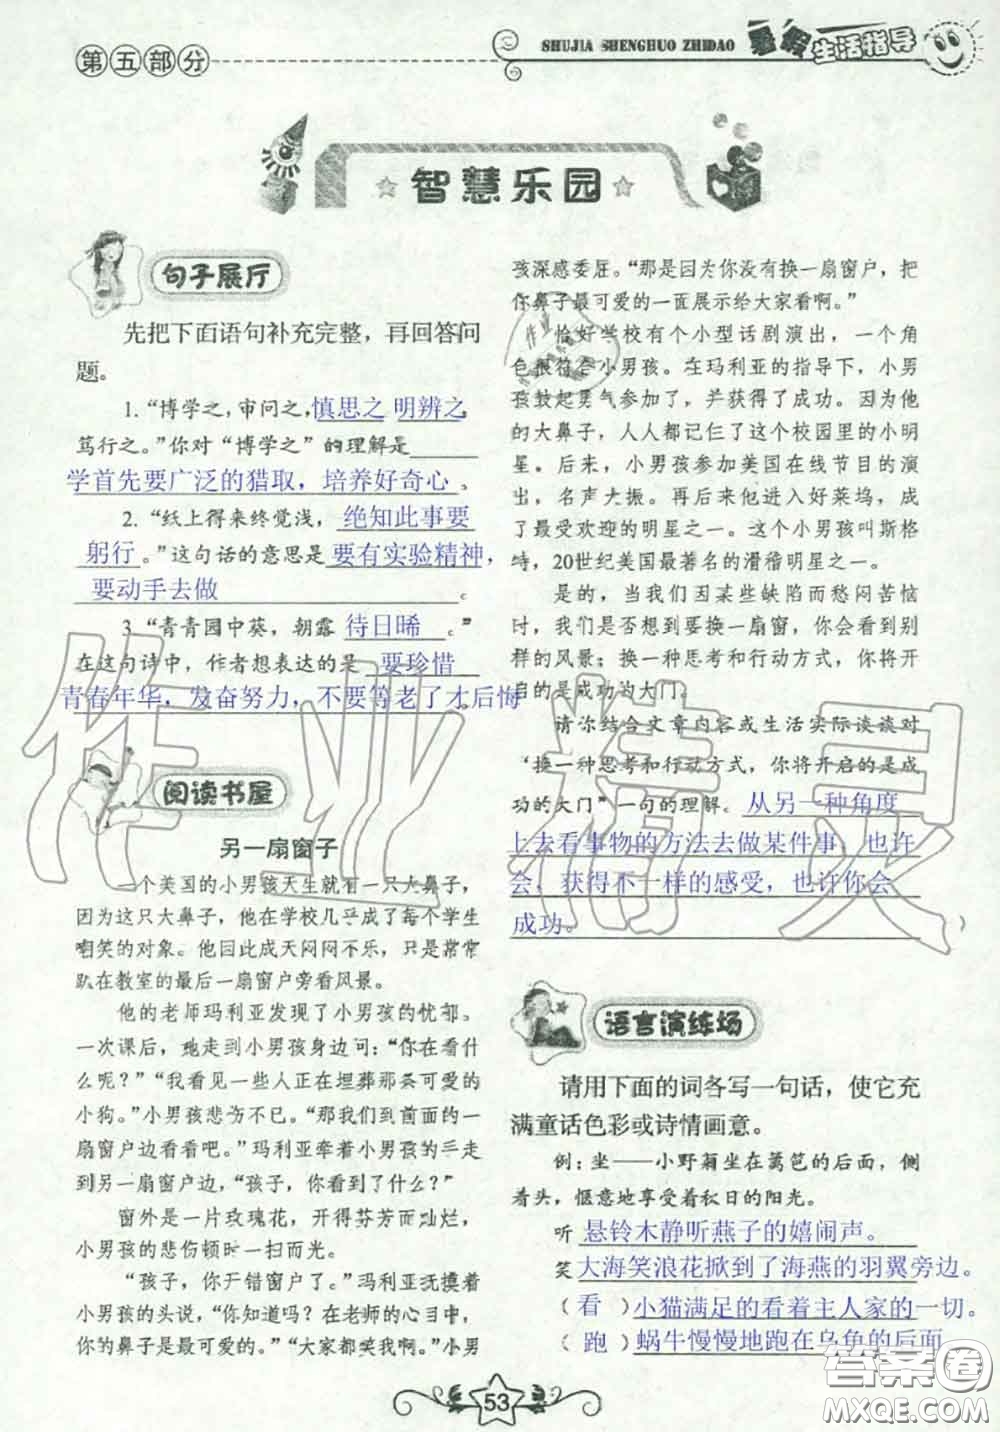 第五部分
SHUJIA SHENGHUO ZHIDAO
暑假生活指导
智慧乐园
句子展厅
先把下面语句补充完整，再回答问
题。
1.“博学之，审问之，慎思之 明辨之，
笃行之。”你对“博学之”的理解是
学首先要广泛的猎取，培养好奇心。
2.“纸上得来终觉浅，绝知此事要
躬行。”这句话的意思是要有实验精神，
要动手去做。
3.“青青园中葵，朝露待日晞。”
在这句诗中，作者想表达的是 要珍惜
青春年华，发奋努力，不要等老了才后悔。
阅读书屋
另一扇窗子
一个美国的小男孩天生就有一只大鼻子，
因为这只大鼻子，他在学校几乎成了每个学生
嘲笑的对象。他因此成天闷闷不乐，只是常常
趴在教室的最后一扇窗户旁看风景。
他的老师玛利亚发现了小男孩的忧郁。
一次课后，她走到小男孩身边问：“你在看什
么呢？”“我看见一些人正在埋葬那条可爱的
小狗。”小男孩悲伤不已。“那我们到前面的一
扇窗户边看看吧。”玛利亚牵着小男孩的手走
到另一扇窗户边，“孩子，你看到了什么？”
窗外是一片玫瑰花，开得芬芳而灿烂，
小男孩的悲伤顿时一扫而光。
“孩子，你开错窗户了。”玛利亚抚摸着
小男孩的头说，“你知道吗？在老师的心目中，
你的鼻子是最可爱的。”“大家都笑我啊。”小男
孩深感委屈。“那是因为你没有换一扇窗户，把
你鼻子最可爱的一面展示给大家看啊。”
恰好学校有个小型话剧演出，一个角
色很符合小男孩。在玛利亚的指导下，小男
孩鼓起勇气参加，并获得了成功。因为他
的大鼻子，人人都记住了这个校园里的小明
星。后来，小男孩参加美国在线节目的演
出，名声大振。再后来他进入好莱坞，成
了最受欢迎的明星之一。这个小男孩叫斯格
特，20世纪美国最著名的滑稽明星之一。
是的，当我们因为某些缺陷而愁闷苦恼
时，我们是否想到要换一扇窗，你会看到别
样的风景；换一种思考和行动方式，你将开
启的是成功的大门。
请你结合文章内容或生活实际谈谈对
“换一种思考和行动方式，你将开启的是成
功的大门”一句的理解。从另一种角度
上去看事物的方法去做某件事，也许
会，获得不一样的感受，也许你会
成功。
语言演练场
请用下面的词各写一句话，使它充
满童话色彩或诗情画意。
例：坐——小野菊坐在篱笆的后面，侧
着头，惬意地享受着秋日的阳光。
听 悬铃木静听燕子的嬉闹声。
笑 大海笑浪花掀到了海燕的羽翼旁边。
（看）小猫满足的看着主人家的一切。
（跑）蜗牛慢慢地跑在乌龟的后面
53
作业精灵
答案圈
MXQE.COM